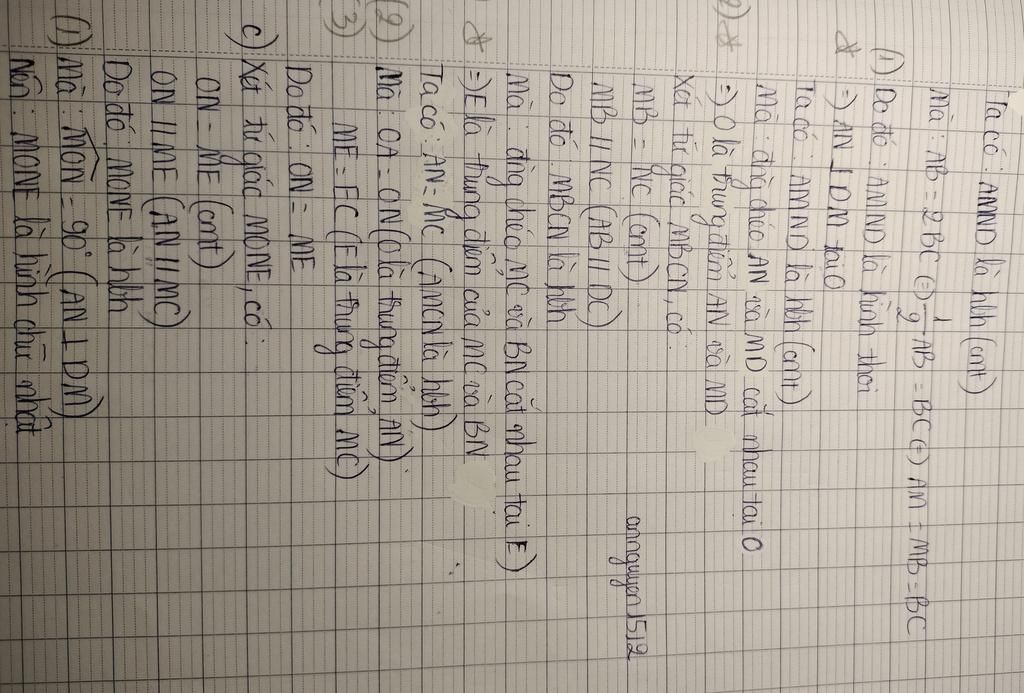 Ta có: AMND là hbh (cmt)
Mà: AB = 2BC (=) 1/2 AB = BC (=) AM = MB = BC
(1) Do đó: AMND là hình thoi
* =) AN ⊥ DM tại O
Ta có: AMND là hbh (cmt)
Mà: đg chéo AN và MD cắt nhau tại O
2) * =) O là trung điểm AN và MD
Xét tứ giác MBCN, có:
MB = NC (cmt)
MB // NC (AB // DC)
Do đó: MBCN là hbh
Mà: đg chéo MC và BN cắt nhau tại E)
* =) E là trung điểm của MC và BN
Ta có: AN = MC (AMCN là hbh)
(2) Mà: OA = ON (O là trung điểm AN)
(3) ME = EC (E là trung điểm MC)
Do đó: ON = ME
c) Xét tứ giác MONE, có:
ON = ME (cmt)
ON // ME (AN // MC)
Do đó: MONE là hbh
(1) Mà: MON = 90° (AN ⊥ DM)
Nên: MONE là hình chữ nhật
annguyen1512